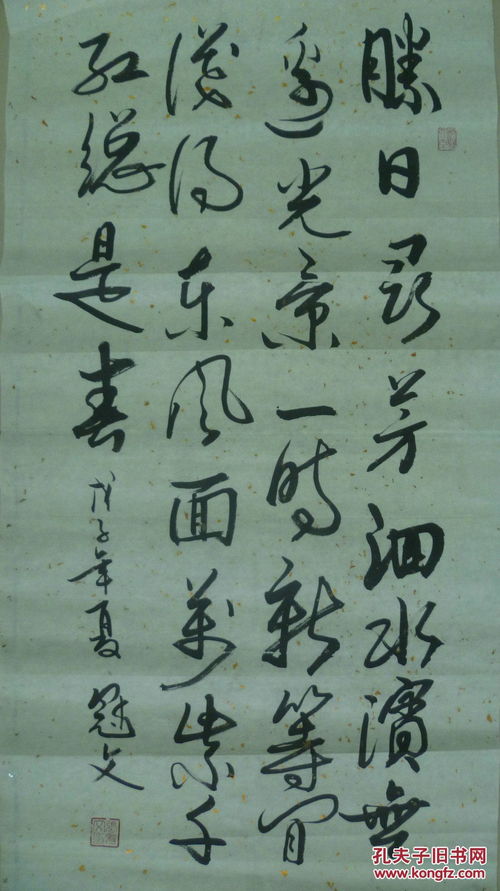 勝日尋芳泗水濱無
邊光景一時新等閒
識得東風面萬紫千
紅總是春
戊子年夏 冠文
孔夫子旧书网
www.kongfz.com